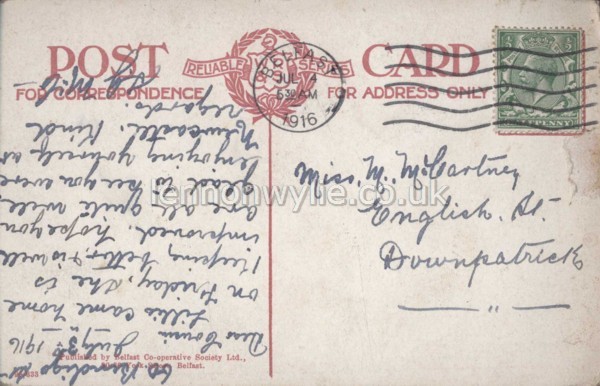 POST CARD
RELIABLE SERIES
FOR CORRESPONDENCE
FOR ADDRESS ONLY
BELFAST
JUL 4
6 30 AM
1916
Miss. M. McCartney
English. St.
Downpatrick
July 3rd 1916
Dear
Lillie came home
on Friday, she is
keeping better, & is well
improved. hope you
are all quite well,
glad to see you were
enjoying yourselves at
Newcastle. Kind
regards.
Published by Belfast Co-operative Society Ltd.,
York Street, Belfast.
lennonwylie.co.uk